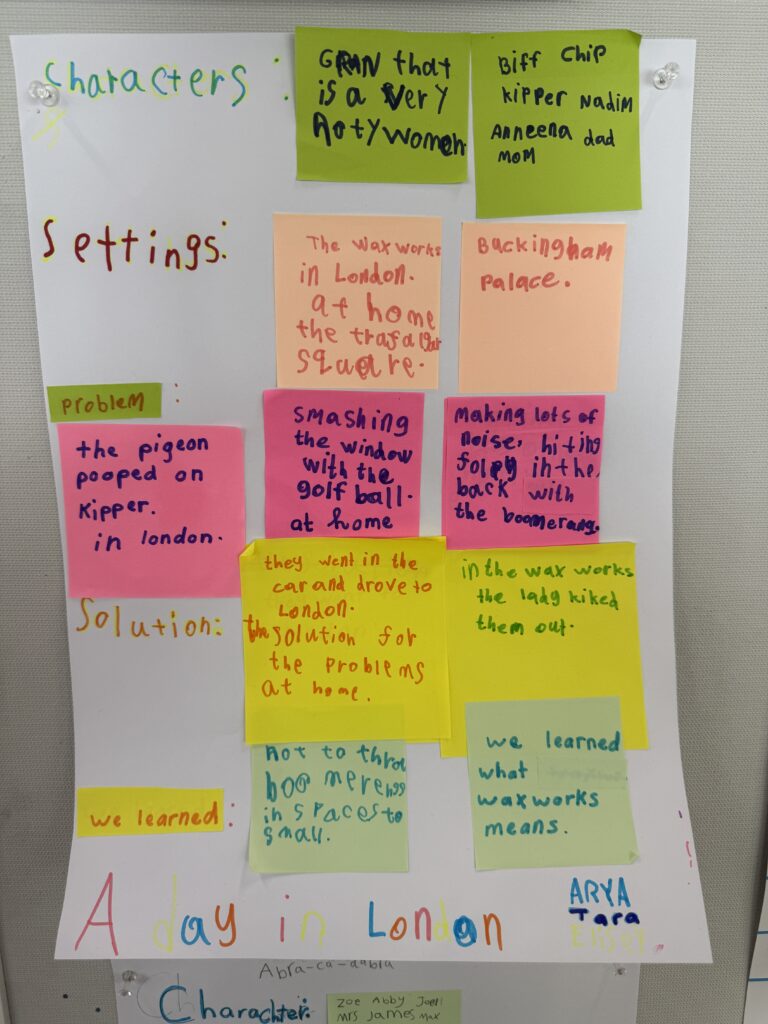 Characters :
GRAN that
is a very
notywomen
Biff Chip
Kipper Nadim
Anneena dad
mom
Settings:
The wax works
in London.
at home
the trafalgar
square.
Buckingham
Palace.
problem :
the pigeon
pooped on
Kipper.
in london.
smashing
the window
with the
golf ball.
at home
making lots of
noise. hiting
in the
back with
the boomerang.
Solution:
they went in the
car and drove to
London.
the solution for
the problems
at home.
in the wax works
the lady kiked
them out.
we learned :
not to throw
boomerengs
in spaces to
small.
we learned
what
waxworks
means.
A day in London
ARYA
Tara
Abra-ca-dabra
Character:
Zoe Abby Joell
Mrs James Max